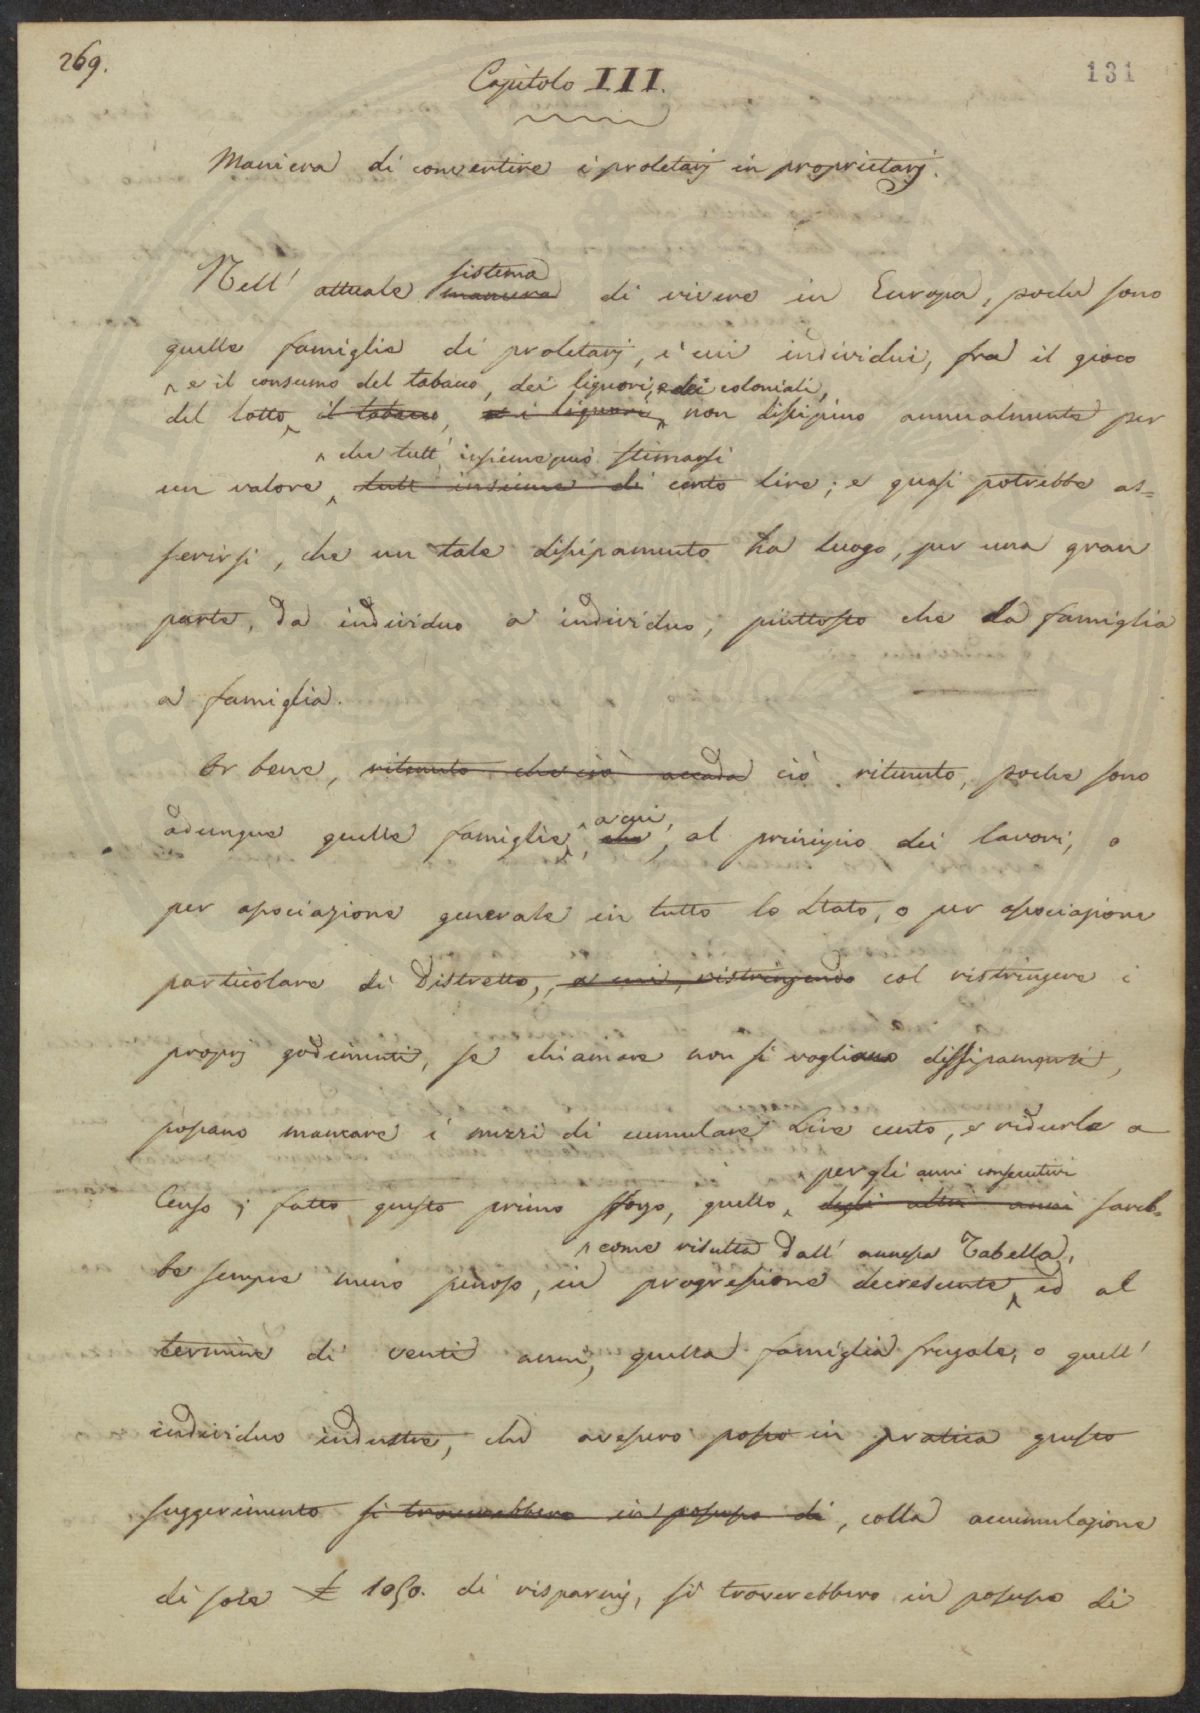 269.
131
Capitolo III.
Maniera di convertire i proletarj in proprietarj.
sistema
Nell' attuale maniera di vivere in Europa, poche sono
quelle famiglie di proletarj, i cui individui, fra il gioco
e il consumo del tabacco, dei liquori, e dei coloniali,
del lotto, il tabacco, e i liquori, non dissipino annualmente per
che tutt' insieme può stimarsi
un valore tutt' insieme di cento lire; e quasi potrebbe as=
serirsi, che un tale dissipamento ha luogo, per una gran
parte, da individuo a individuo, piuttosto che da famiglia
a famiglia.
Or bene, ritenuto che ciò accada ciò ritenuto, poche sono
a cui,
adunque quelle famiglie, che, al principio dei lavori, o
per associazione generale in tutto lo Stato, o per associazione
particolare di Distretto, a cui, ristringendo col ristringere i
proprj godimenti, se chiamare non si vogliano dissipamenti,
possano mancare i mezzi di cumulare Lire cento, e ridurle a
per gli anni consecutivi
Censo; fatto questo primo sforzo, quello degli altri anni sareb=
come risulta dall' annessa Tabella,
be sempre meno penoso, in progressione decrescente, ed al
termine di venti anni, quella famiglia frugale, o quell'
individuo industre, che avessero posto in pratica questo
suggerimento si troverebbero in possesso di, colla accumulazione
di sole £ 1050. di risparmj, si troverebbero in possesso di